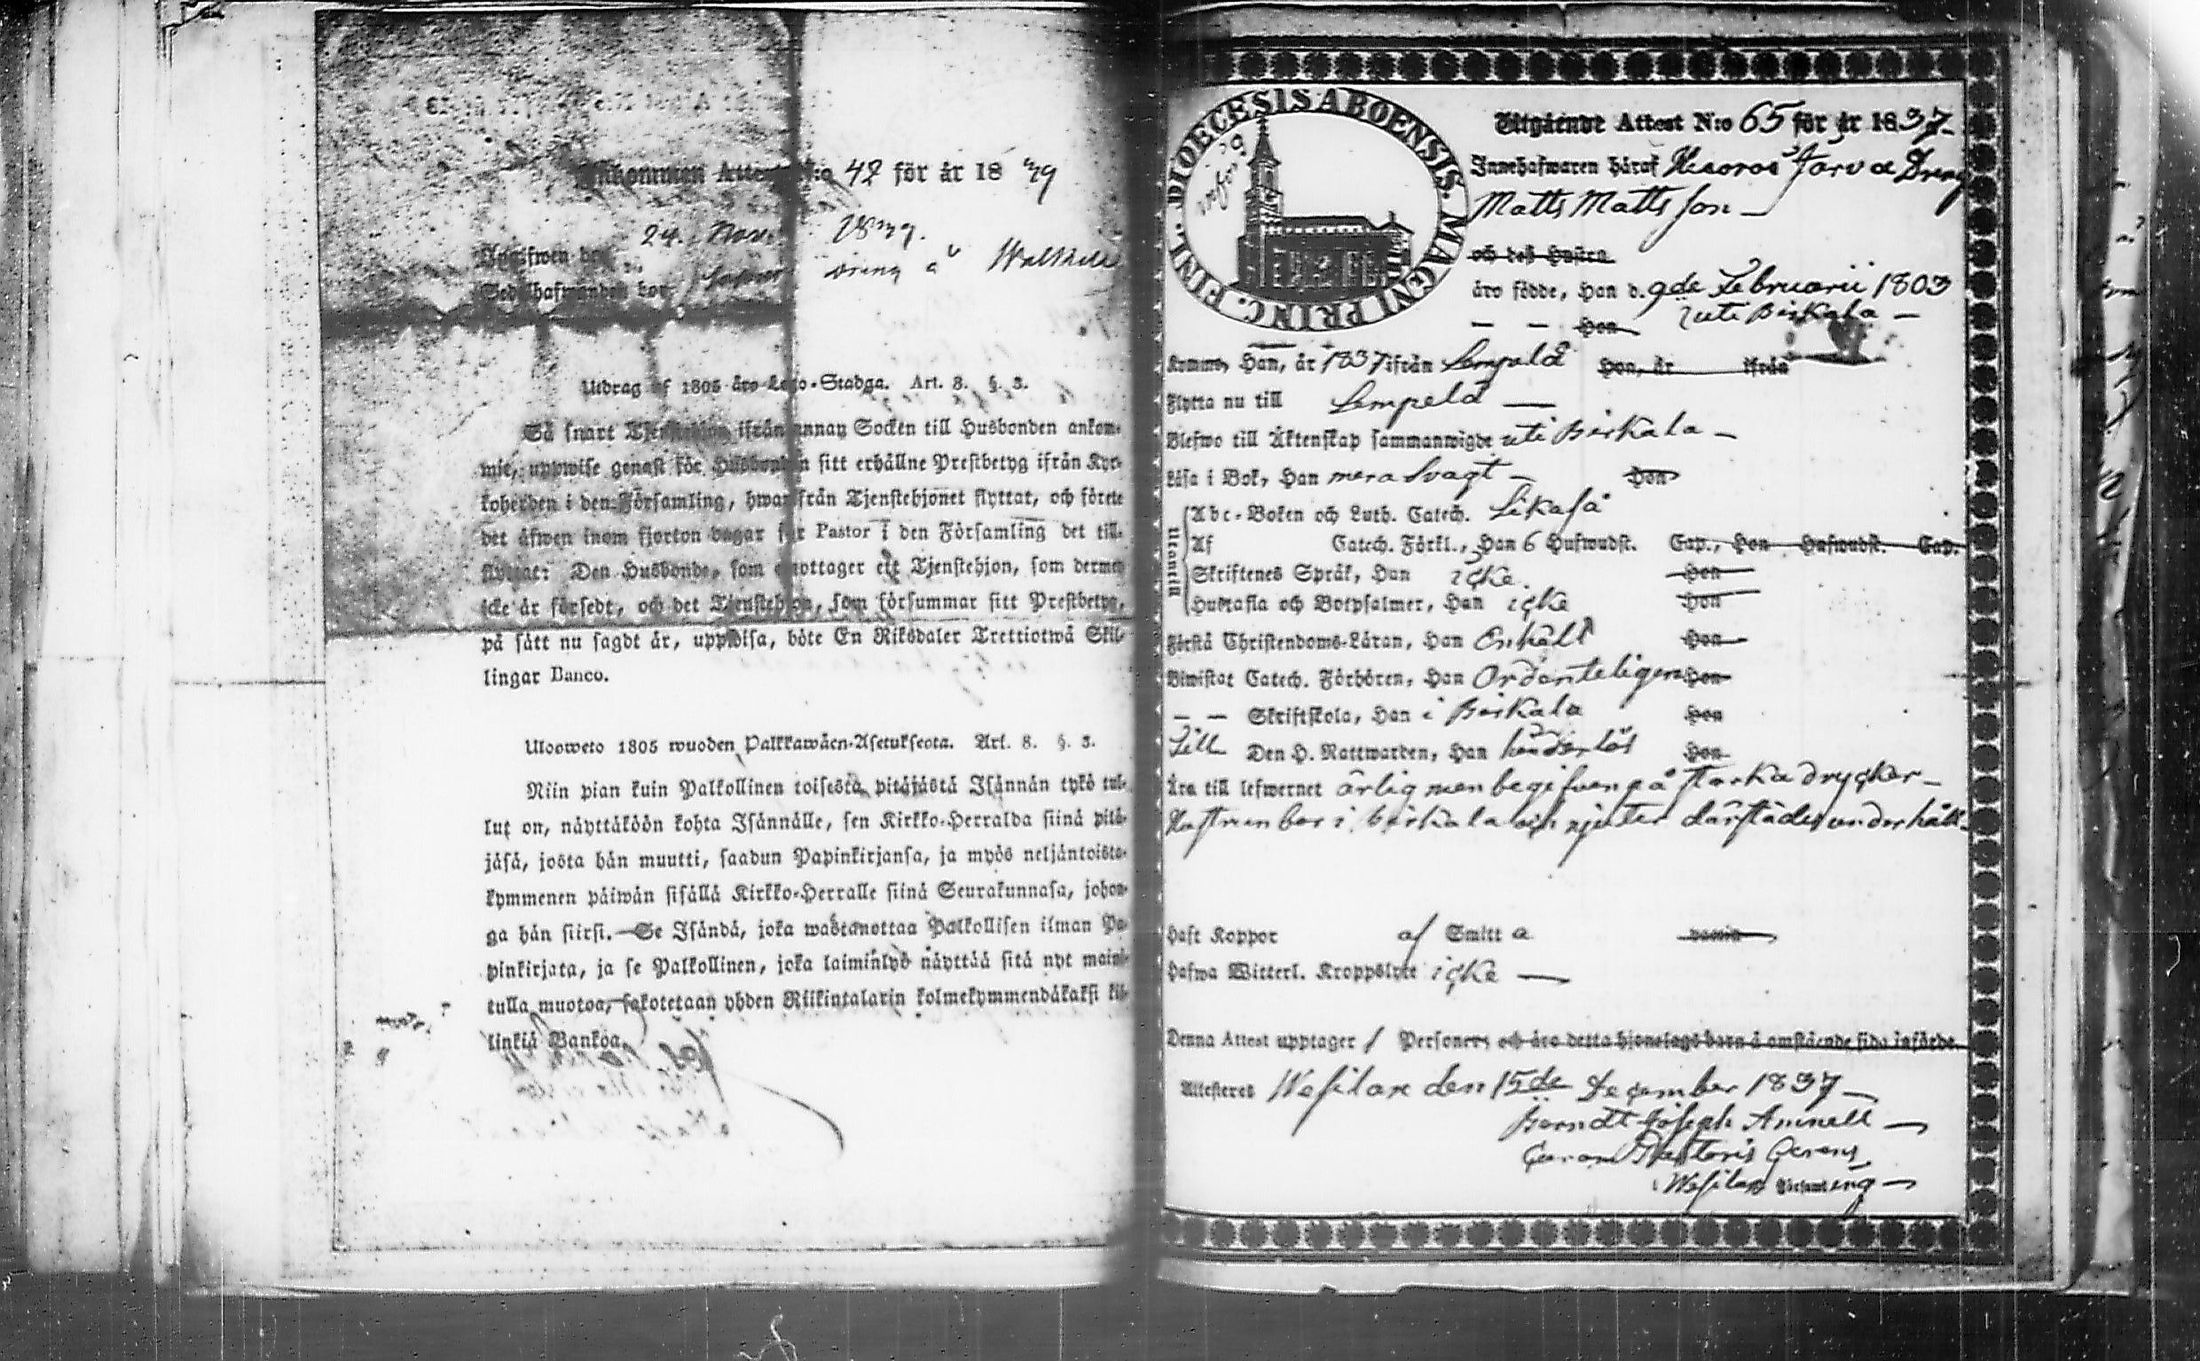 Attest N:o 42 för år 1839
24. Nov. 1839.
dreng å
Utdrag af 1805 års Lego-Stadga. Art. 8. §. 3.
Så snart Tjenstehjon ifrån annan Socken till Husbonden ankom-
mit, uppwise genast för Husbonden sitt erhållne Prestbetyg ifrån Kyr-
koherden i den Församling, hwarifrån Tjenstehjonet flyttat, och förete
det äfwen inom fjorton dagar för Pastor i den Församling det till-
flyttat: Den Husbonde, som emottager ett Tjenstehjon, som dermed
icke är försedt, och det Tjenstehjon, som försummar sitt Prestbetyg,
på sätt nu sagdt är, uppwisa, böte En Riksdaler Trettiotwå Skil-
lingar Banco.
Ulosweto 1805 wuoden Palkkawäen-Asetuksesta. Art. 8. §. 3.
Niin pian kuin Palkollinen toisesta pitäjästä Isännän tykö tul-
lut on, näyttäköön kohta Isännälle, sen Kirkko-Herralda siinä pitä-
jäsä, josta hän muutti, saadun Papinkirjansa, ja myös neljäntoista-
kymmenen päiwän sisällä Kirkko-Herralle siinä Seurakunnasa, johon-
ga hän siirsi. Se Isändä, joka wastanottaa Palkollisen ilman Pa-
pinkirjata, ja se Palkollinen, joka laiminlyö näyttää sitä nyt maini-
tulla muotoa, sakotetaan yhden Riikintalarin kolmekymmendäkaksi kil-
linkiä Bankoa.
DIOECESIS ABOENSIS. MAGNI PRINC. FINL.
Utgående Attest N:o 65 för år 1837.
Innehafwaren häraf Dreng
Matts Mattsson
och dess Hustru
äro födde, Han d. 9de Februarii 1803
uti Birkala
— — Hon
Komne, Han, år 1837 ifrån Lempälä Hon, år ifrån
Flytta nu till Lempelä
Blefwo till Äktenskap sammanwigde uti Birkala
Läsa i Bok, Han mera svagt Hon
Utanella
Abc-Boken och Luth. Catech. Likaså
Af Catech. Förkl., Han 6 Hufwudst. Cap., Hon Hufwudst. Cap.
Skriftenes Språk, Han icke Hon
Hustafla och Botpsalmer, Han icke Hon
Förstå Christendoms-Läran, Han Enkelt Hon
Biwistat Catech. Förhören, Han Ordenteligen Hon
— — Skriftskola, Han i Birkala Hon
Till Den H. Nattwarden, Han hinderlös Hon
Äro till lefwernet ärlig men begifven på starka drycker
Hustrun bor i Birkala och njuter därstädes underhåll
Haft Koppor af Smitt a
Hafwa Witterl. Kroppslyte icke
Denna Attest upptager 1 Personer och äro detta hjonelags barn å omstående sida införde.
Attesteras Wesilax den 15de December 1837
Berndt Joseph Amnell
Curam Pastoris Gerens
i Wesilax Församling